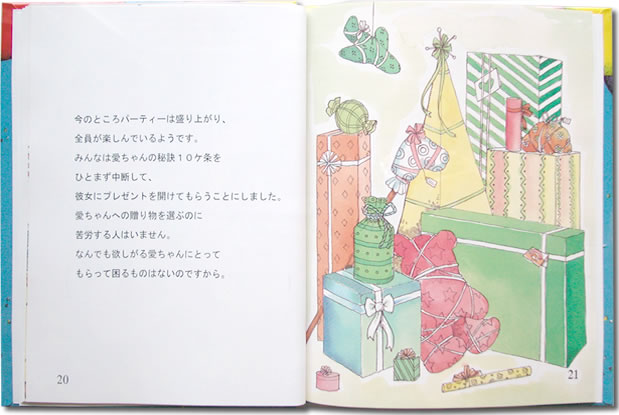 今のところパーティーは盛り上がり、
全員が楽しんでいるようです。
みんなは愛ちゃんの秘訣１０ケ条を
ひとまず中断して、
彼女にプレゼントを開けてもらうことにしました。
愛ちゃんへの贈り物を選ぶのに
苦労する人はいません。
なんでも欲しがる愛ちゃんにとって
もらって困るものはないのですから。
20
21